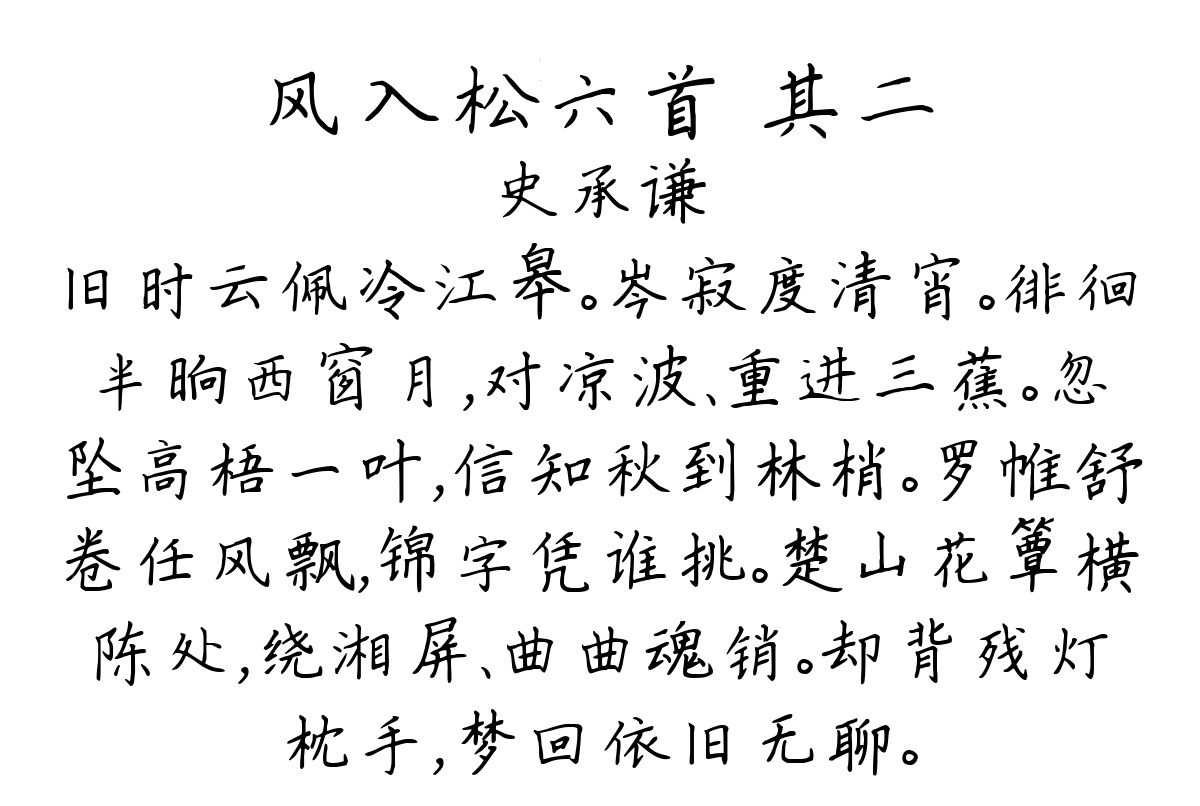 风入松六首 其二
史承谦
旧时云佩冷江皋。岑寂度清宵。徘徊
半晌西窗月,对凉波、重进三蕉。忽
坠高梧一叶,信知秋到林梢。罗帷舒
卷任风飘,锦字凭谁挑。楚山花簟横
陈处,绕湘屏、曲曲魂销。却背残灯
枕手,梦回依旧无聊。